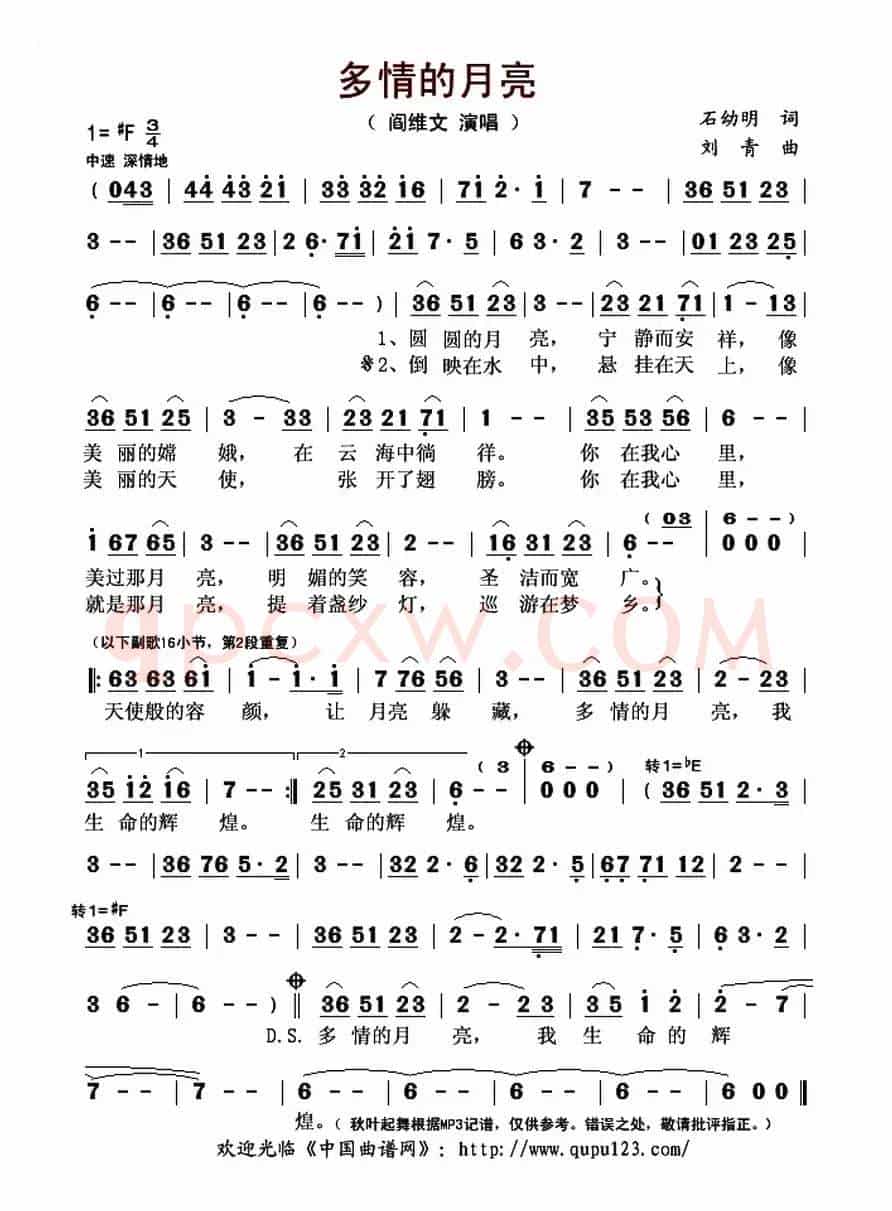 多情的月亮
（ 阎维文 演唱 ）
1= #F 3/4
石幼明 词
中速 深情地
刘 青 曲
( 043 | 44 43 21 | 33 32 16 | 71 2· 1 | 7 - - | 36 51 23 |
3 - - | 36 51 23 | 2 6· 71 | 21 7· 5 | 6 3· 2 | 3 - - | 01 23 25 |
6 - - | 6 - - | 6 - - | 6 - - ) | 36 51 23 | 3 - - | 23 21 71 | 1 - 13 |
1、圆 圆的月 亮， 宁 静而安 祥， 像
※2、倒 映在水 中， 悬 挂在天 上， 像
36 51 25 | 3 - 33 | 23 21 71 | 1 - - | 35 53 56 | 6 - - |
美 丽的嫦 娥， 在 云 海中徜 徉。 你 在我心 里，
美 丽的天 使， 张 开了翅 膀。 你 在我心 里，
( 03 | 6 - - )
1 67 65 | 3 - - | 36 51 23 | 2 - - | 16 31 23 | 6 - - | 0 0 0 |
美过那月 亮， 明 媚的笑 容， 圣 洁而宽 广。
就是那月 亮， 提 着盏纱 灯， 巡 游在梦 乡。
qpcxw.COM
（以下副歌16小节，第2段重复）
‖: 63 63 61 | 1 - 1· 1 | 77 76 56 | 3 - - | 36 51 23 | 2 - 23 |
天使般的容 颜， 让 月亮 躲 藏， 多 情的月 亮， 我
1 2 ( 3 | 6 - - ) 转1=bE
35 12 16 | 7 - - :‖ 25 31 23 | 6 - - | 0 0 0 | ( 36 51 2· 3 |
生 命的辉 煌。 生 命的辉 煌。
3 - - | 36 76 5· 2 | 3 - - | 32 2· 6 | 32 2· 5 | 67 71 12 | 2 - - |
转1=#F
36 51 23 | 3 - - | 36 51 23 | 2 - 2· 71 | 21 7· 5 | 6 3· 2 |
3 6 - | 6 - - ) ‖ 36 51 23 | 2 - 23 | 35 1 2 | 2 - 7 |
D.S. 多 情的月 亮， 我 生 命 的 辉
7 - - | 7 - - | 6 - - | 6 - - | 6 - - | 6 0 0 ‖
煌。（ 秋叶起舞根据MP3记谱，仅供参考。错误之处，敬请批评指正。）
欢迎光临《中国曲谱网》：http://www.qupu123.com/